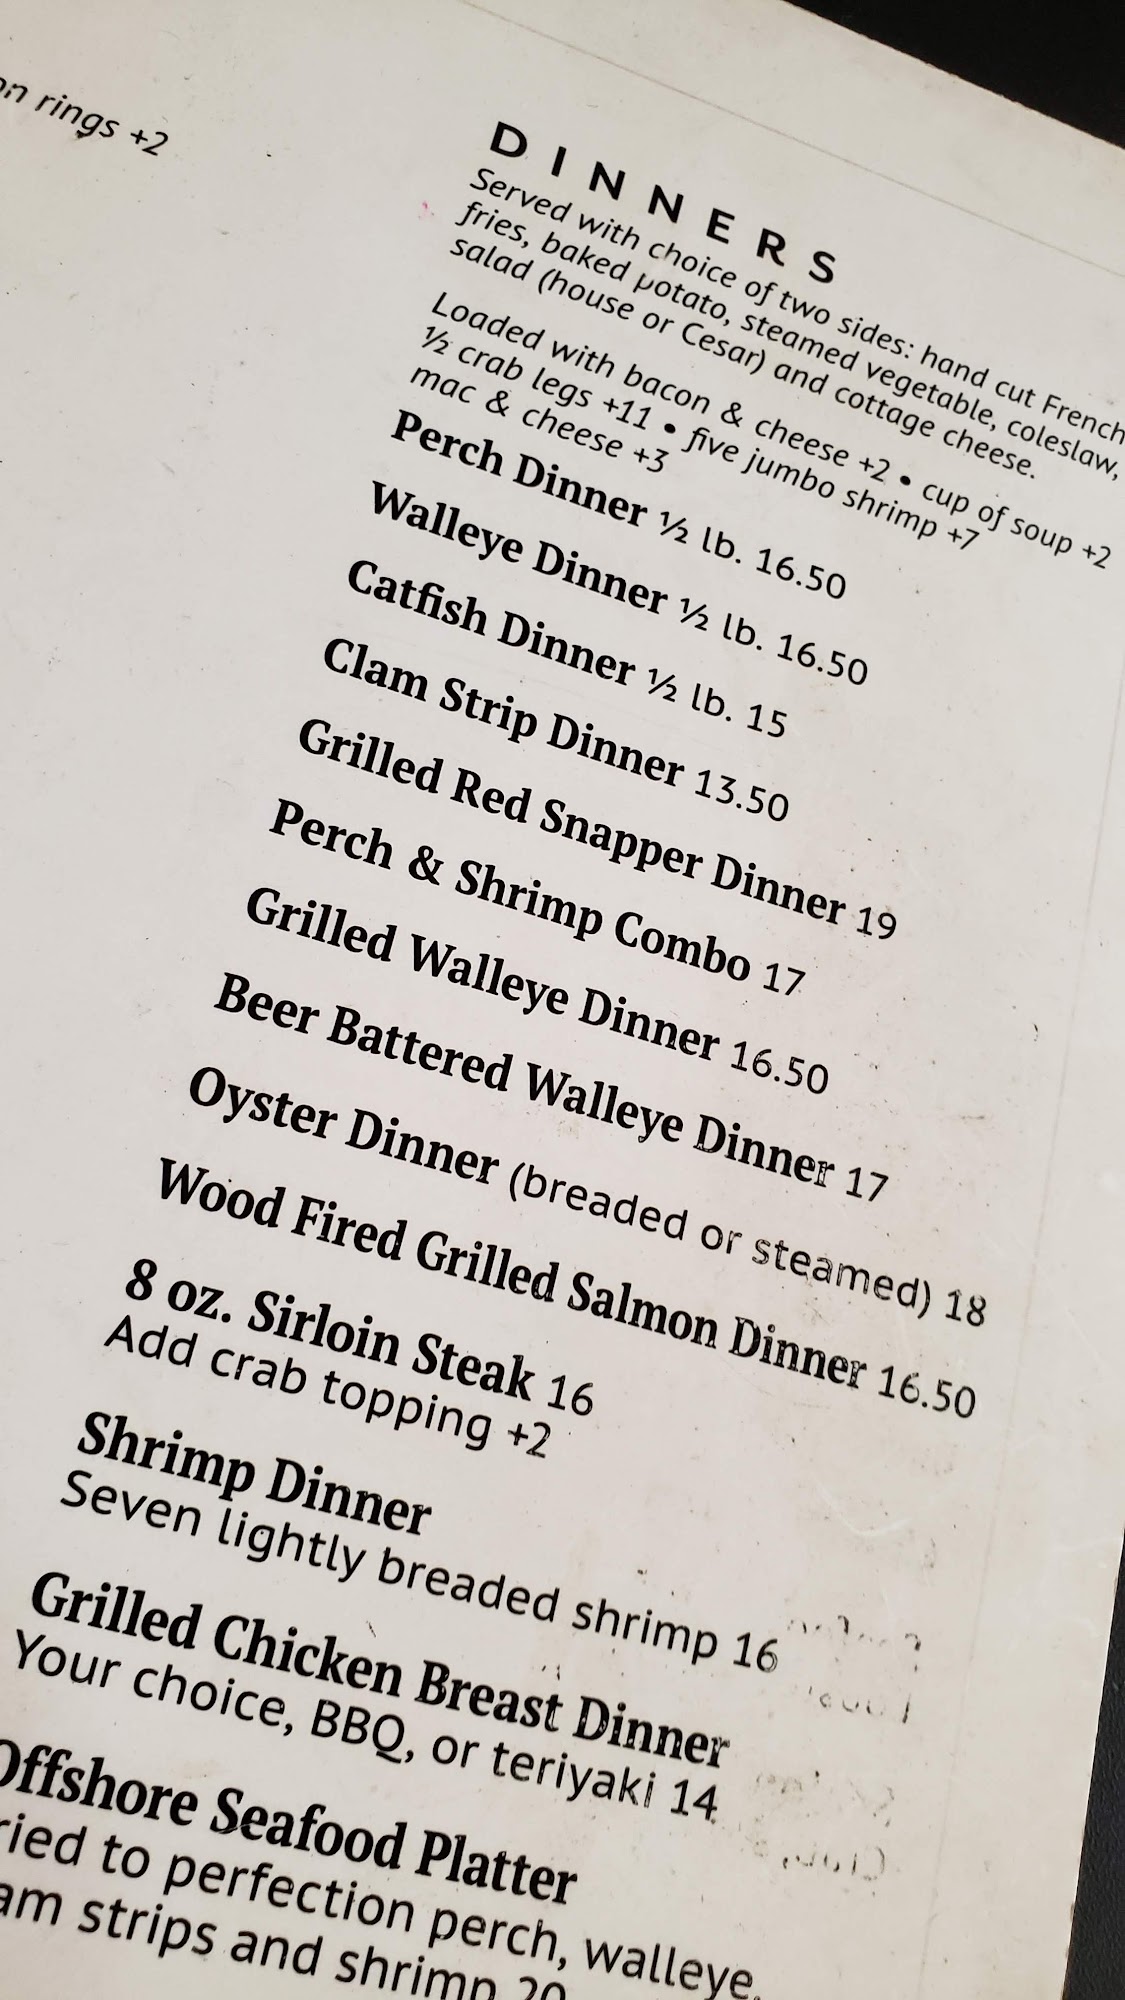 on rings +2
DINNERS
Served with choice of two sides: hand cut French
fries, baked potato, steamed vegetable, coleslaw,
salad (house or Cesar) and cottage cheese.
Loaded with bacon & cheese +2 • cup of soup +2
½ crab legs +11 • five jumbo shrimp +7
mac & cheese +3
Perch Dinner ½ lb. 16.50
Walleye Dinner ½ lb. 16.50
Catfish Dinner ½ lb. 15
Clam Strip Dinner 13.50
Grilled Red Snapper Dinner 19
Perch & Shrimp Combo 17
Grilled Walleye Dinner 16.50
Beer Battered Walleye Dinner 17
Oyster Dinner (breaded or steamed) 18
Wood Fired Grilled Salmon Dinner 16.50
8 oz. Sirloin Steak 16
Add crab topping +2
Shrimp Dinner
Seven lightly breaded shrimp 16
Grilled Chicken Breast Dinner
Your choice, BBQ, or teriyaki 14
Offshore Seafood Platter
ried to perfection perch, walleye,
am strips and shrimp 20